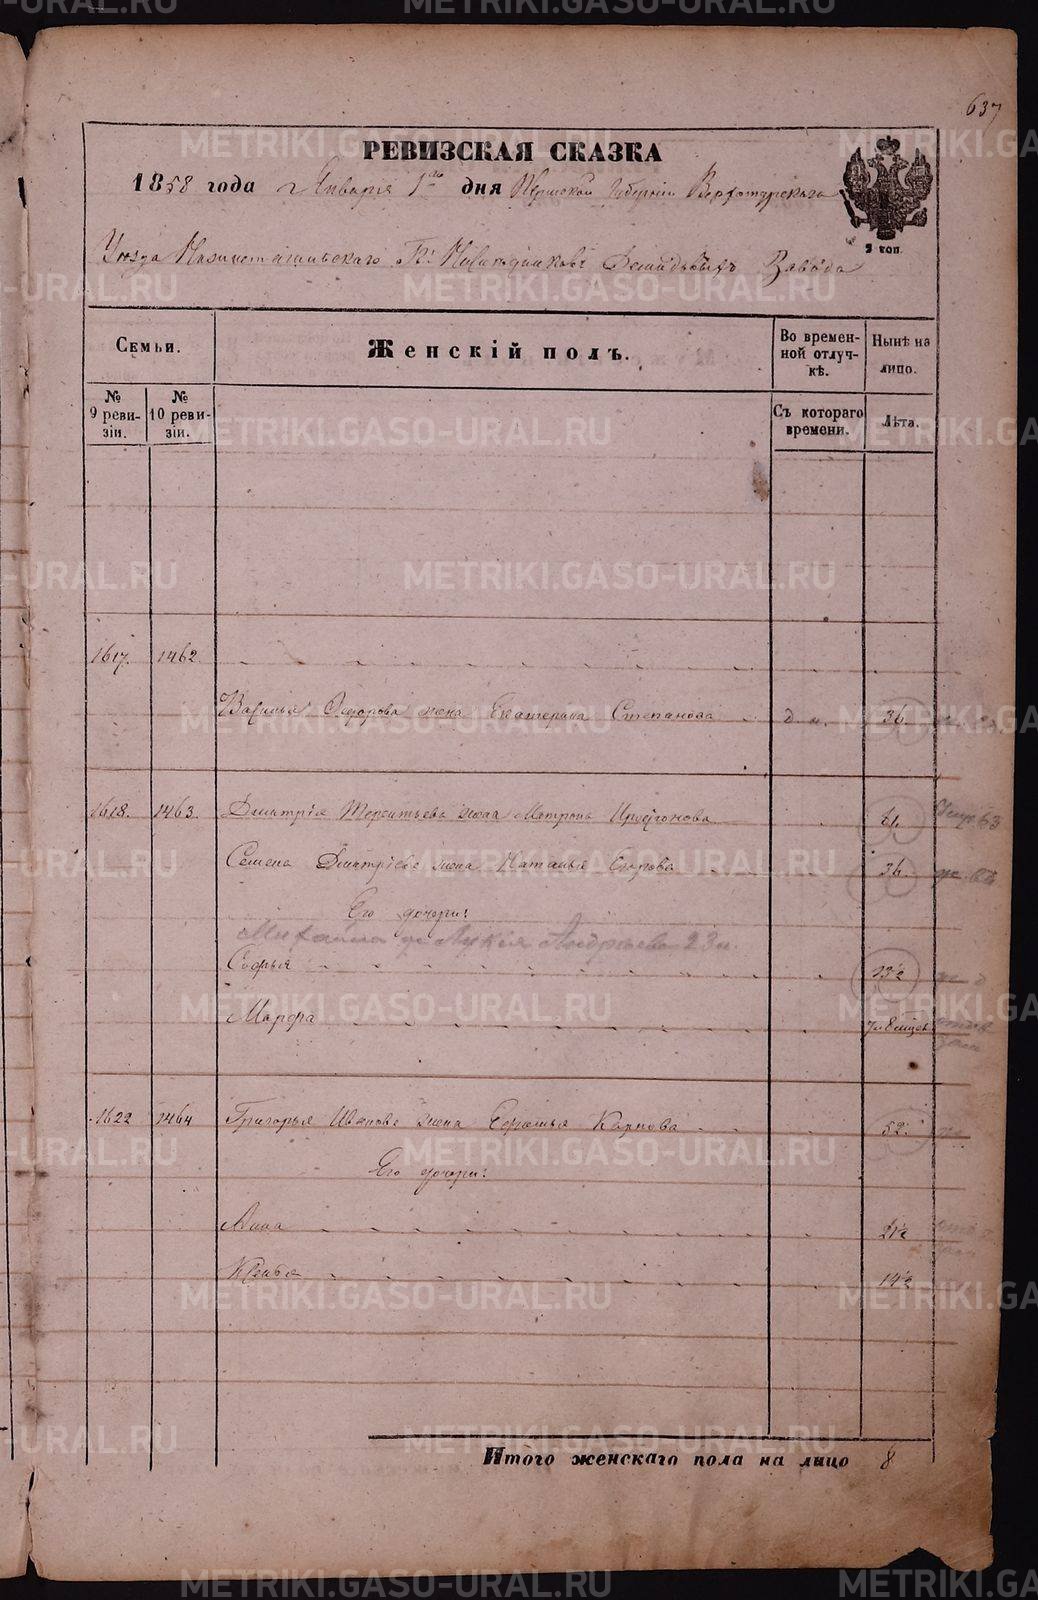 METRIKI.GASO-URAL.RU
637
РЕВИЗСКАЯ СКАЗКА
1858 года Января 1го дня Пермской Губерніи Верхотурскаго
2 коп.
Уѣзда Нижнетагильскаго Гг: Наслѣдниковъ Демидовыхъ Завода
Семьи.
Женскій полъ.
Во времен-
ной отлуч-
кѣ.
Нынѣ на
лицо.
№
9 реви-
зіи.
№
10 реви-
зіи.
Съ котораго
времени.
Лѣта.
1617. 1462.
Василья Ѳедорова жена Екатерина Степанова 36
1618. 1463. Дмитрія Терентьева жена Матрона 61.
Семена Дмитріева жена Наталья Егорова 36
Его дочери:
Михаила ж Лукія Андреева 23 л.
Софья 13½
Марфа 7 м
1622 1464 Григорья Иванова жена Карпова 52.
Его дочери:
Анна 21½
Ксенья 14½
Итого женскаго пола на лицо 8